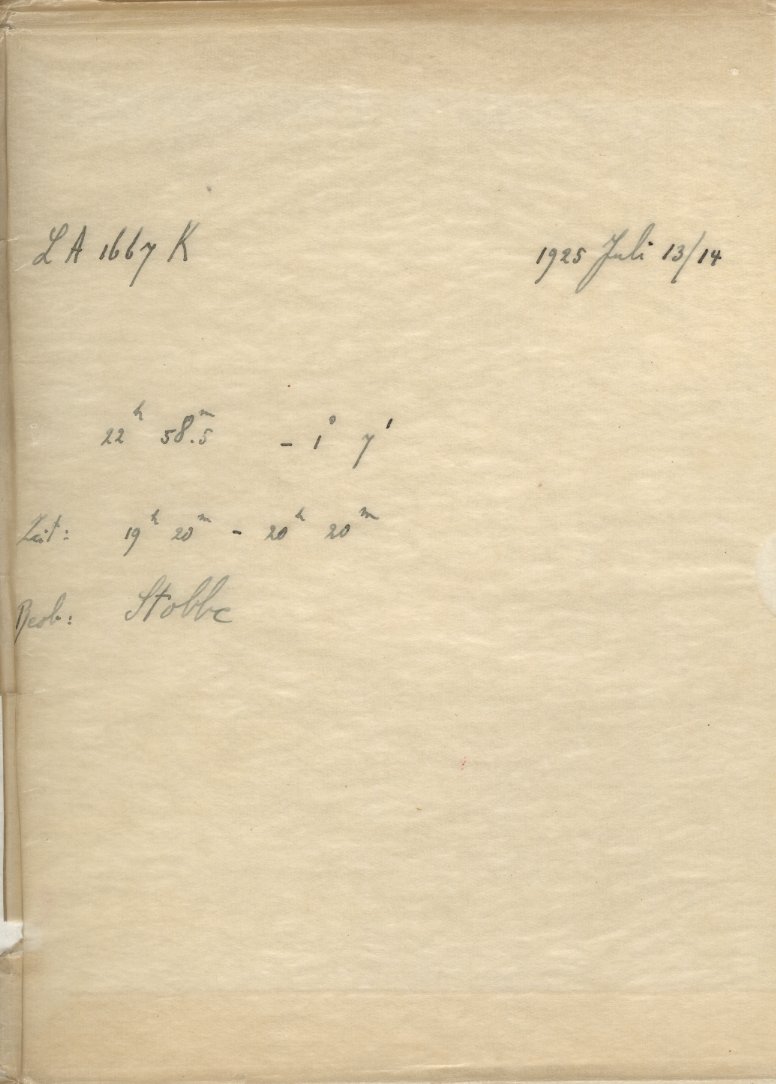 LA 1667 K 1925 Juli 13/14
22ʰ 58.5ᵐ - 1° 7'
Zeit: 19ʰ 20ᵐ - 20ʰ 20ᵐ
Beob: Stobbe